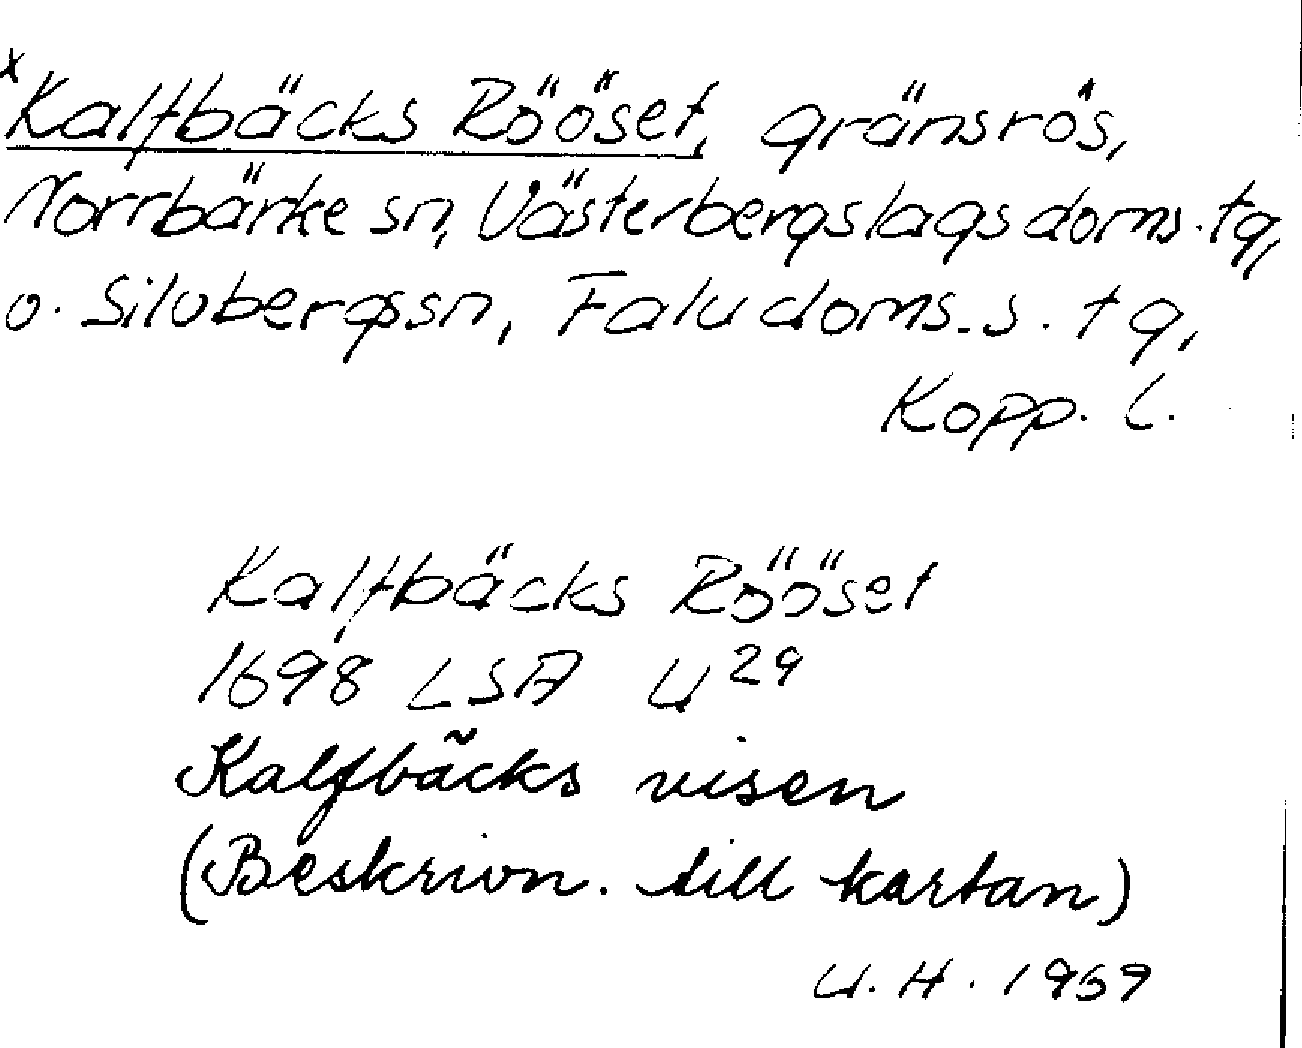 *Kalfbäcks Rööset, gränsrös,
Norrbärke sn, Västerbergslags doms. tg,
o. Silvbergs sn, Falu doms. s. tg,
Kopp. l.
Kalfbäcks Rööset
1698 LSA U²⁹
Kalfbäcks visen
(Beskrivn. till kartan)
U. H. 1969